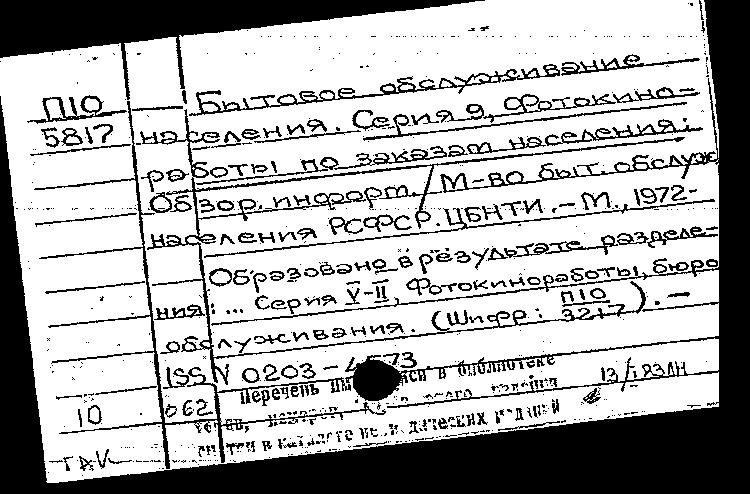 П10 Бытовое обслуживание
5817 населения. Серия 9, Фотокино-
работы по заказам населения:
Обзор. информ. / М-во быт. обслуж
населения РСФСР. ЦБНТИ. – М., 1972-
Образовано в результате разделе-
ния: ... Серия V-II, Фотокиноработы, бюро
обслуживания. (Шифр: П10 3217). –
ISSN 0203-4573
Перечень в библиотеке
10 062
в каталоге периодических изданий
ГАК